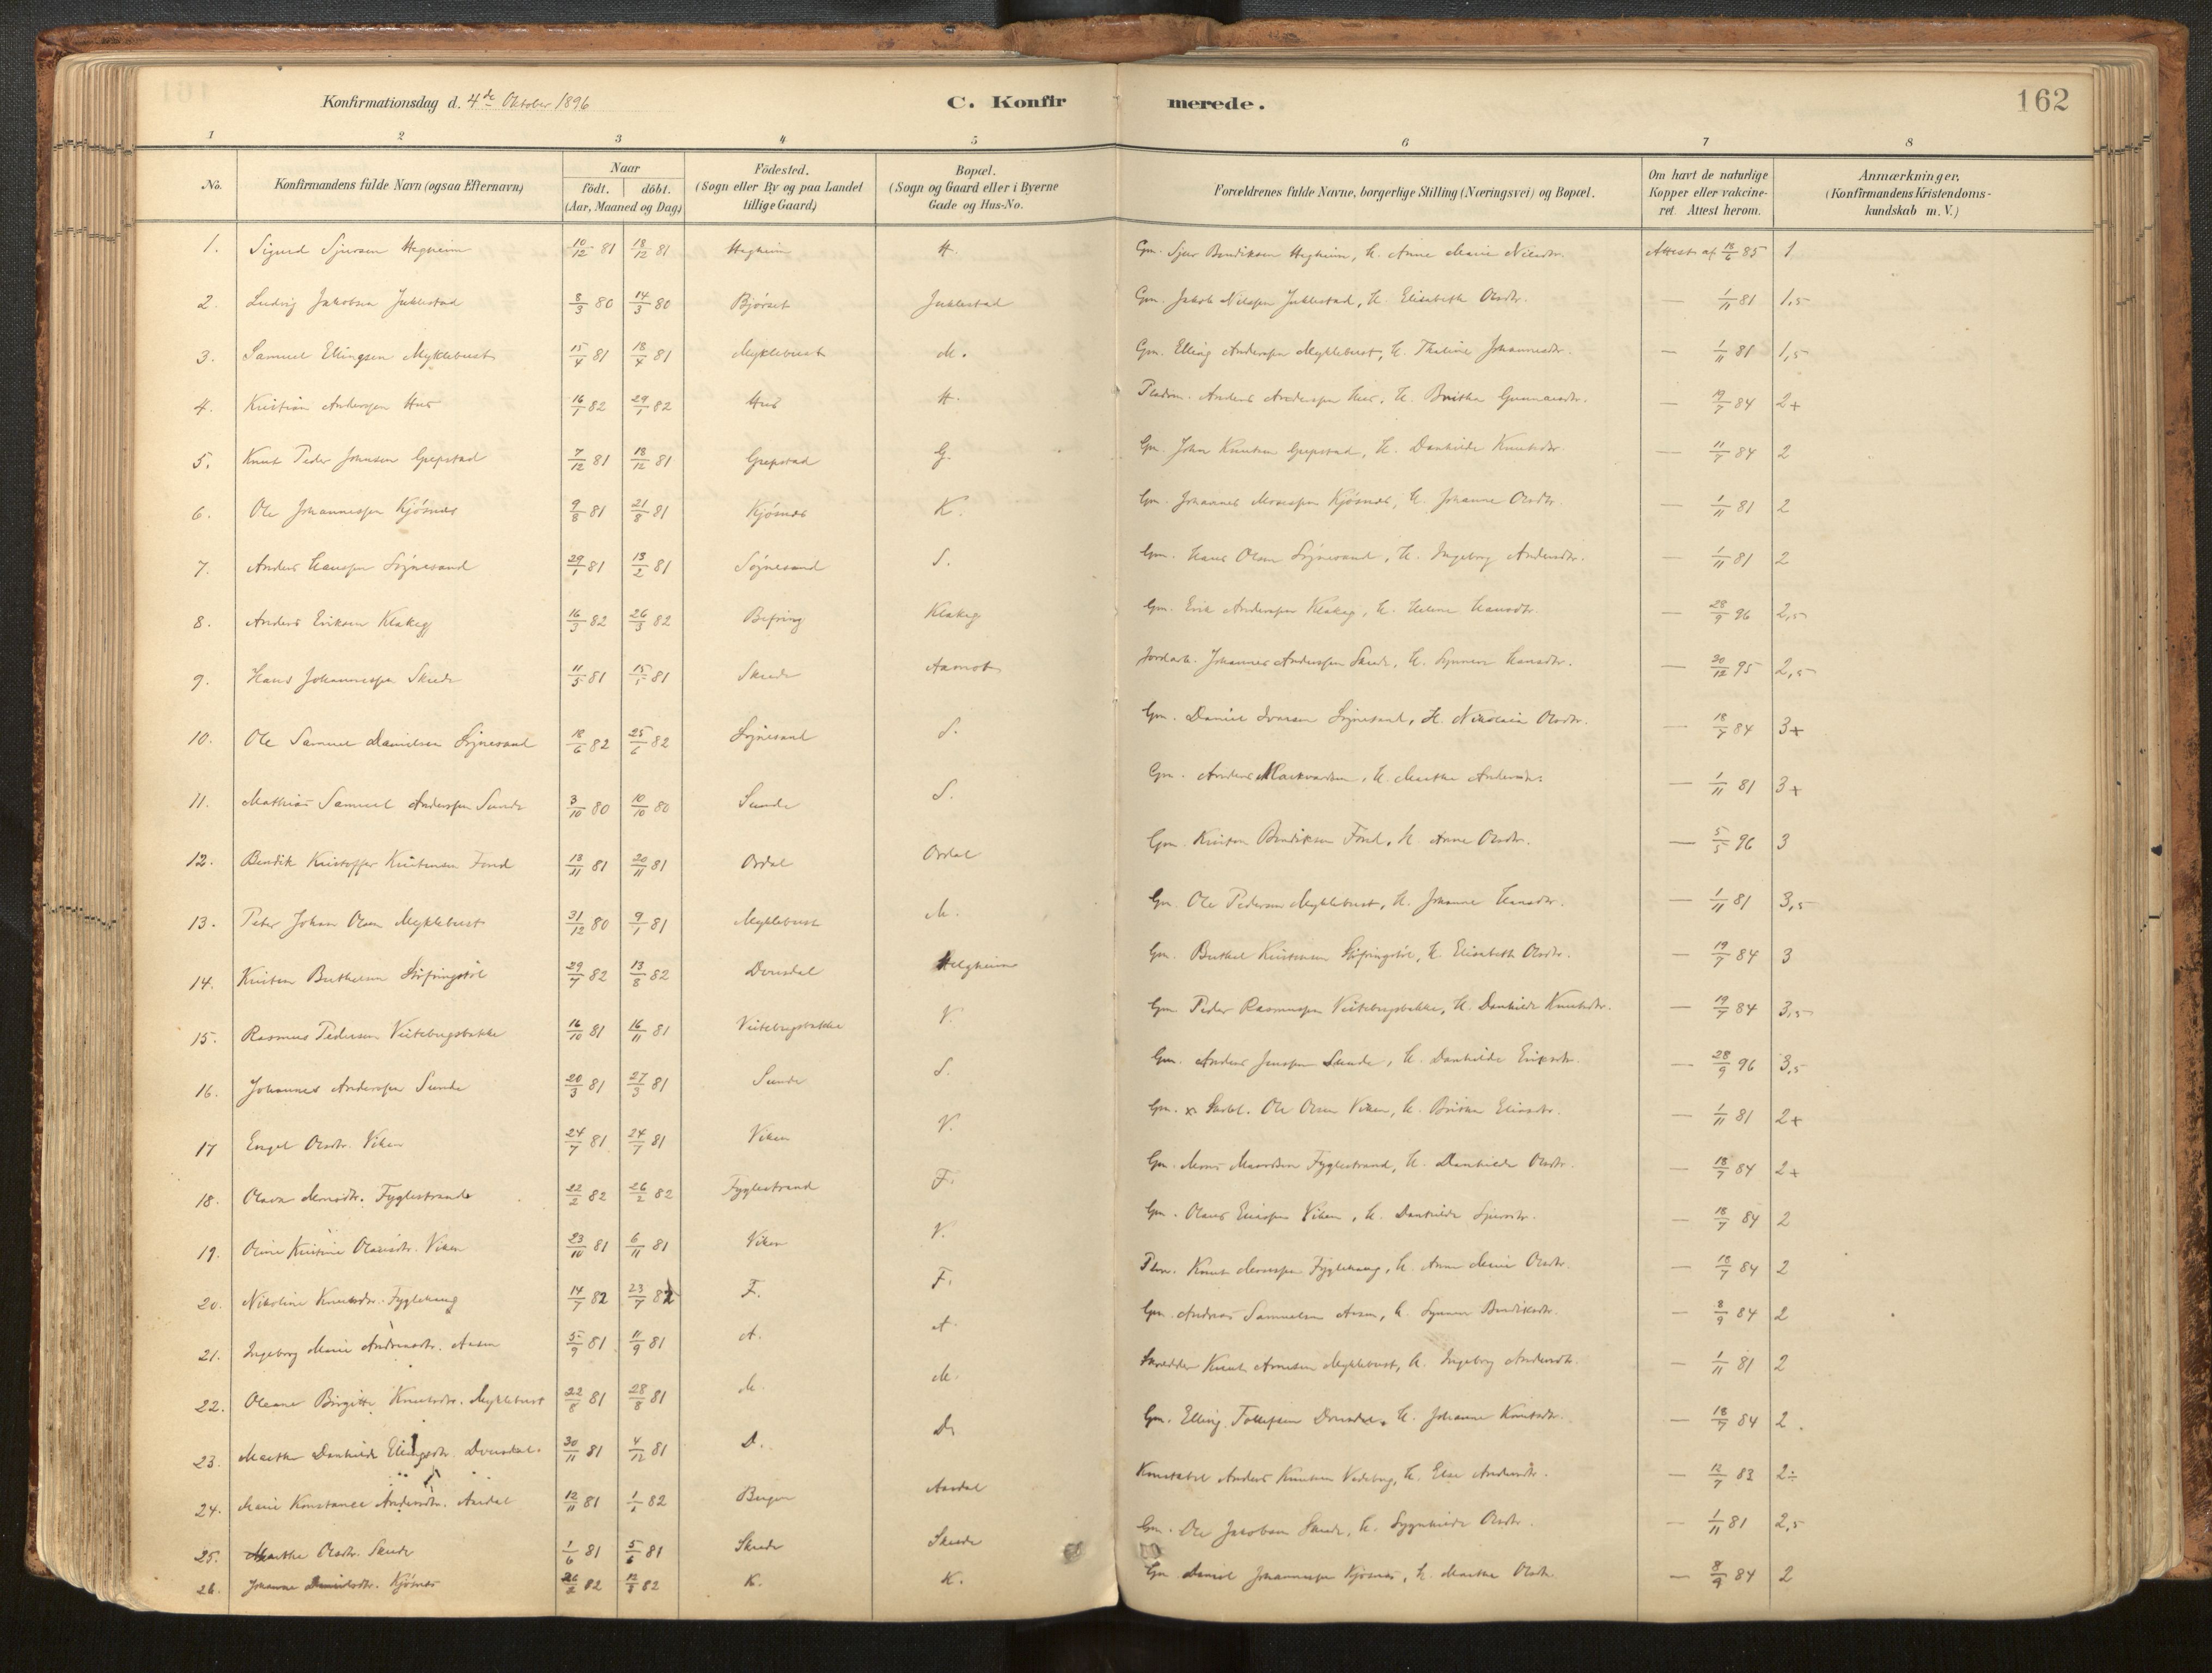 Konfirmationsdag d. 4de Oktober 1896
C. Konfir
merede.
162
1 2 3 4 5 6 7 8
No.
Konfirmandens fulde Navn (ogsaa Efternavn)
Naar
födt. döbt.
(Aar, Maaned og Dag)
Födested.
(Sogn eller By og paa Landet
tillige Gaard)
Bopæl.
(Sogn og Gaard eller i Byerne
Gade og Hus-No.
Forældrenes fulde Navne, borgerlige Stilling (Næringsvei) og Bopæl.
Om havt de naturlige
Kopper eller vakcine-
ret. Attest herom.
Anmærkninger,
(Konfirmandens Kristendoms-
kundskab m. V.)
1. Sigurd Sjursen Hegheim 10/12 81 18/12 81 Hegheim H. Gm. Sjur Bendiksen Hegheim, H. Anne Marie Nilsdtr. Attest af 18/6 85 1
2. Ludvig Jakobsen Juklestad 8/3 80 14/3 80 Bjørset Juklestad Gm. Jakob Nilssen Juklestad, H. Elisabeth Olsdtr. — 1/11 81 1,5
3. Samuel Ellingsen Myklebust 15/4 81 18/4 81 Myklebust M. Gm. Elling Anderssen Myklebust, H. Thaline Johannesdtr. — 1/11 81 1,5
4. Kristian Anderssen Hus 16/1 82 29/1 82 Hus H. Pladsm. Anders Anderssen Hus, H. Brithe Gunnarsdtr. — 19/7 84 2+
5. Knut Peder Johnsen Grepstad 7/12 81 18/12 81 Grepstad G. Gm. John Knutsen Grepstad, H. Danhilde Knutsdtr. — 11/7 84 2
6. Ole Johannessen Kjósnes 9/8 81 21/8 81 Kjósnes K. Gm. Johannes Monssen Kjósnes, H. Johanne Olsdtr. — 1/11 81 2
7. Anders Hanssen Sójnesand 29/1 81 13/2 81 Sójnesand S. Gm. Hans Olsen Sójnesand, H. Ingeborg Andersdtr. — 1/11 81 2
8. Anders Eriksen Klakeg 16/3 82 26/3 82 Befring Klakeg Gm. Erik Anderssen Klakeg, H. Helene Hansdtr. — 28/9 96 2,5
9. Hans Johannessen Skrede 11/5 81 15/5 81 Skrede Aamot Jordarb. Johannes Anderssen Skrede, H. Synneve Hansdtr. — 30/12 95 2,5
10. Ole Samuel Danielsen Sójnesand 18/6 82 25/6 82 Sójnesand S. Gm. Daniel Ivarsen Sójnesand, H. Nikolaia Olsdtr. — 18/7 84 3+
11. Mathias Samuel Anderssen Sunde 3/10 80 10/10 80 Sunde S. Gm. Anders Markvardsen, H. Marthe Andersdtr. — 1/11 81 3+
12. Bendik Kristoffer Kristensen Fond 13/11 81 20/11 81 Ordal Ordal Gm. Kristen Bendiksen Fond, H. Anne Olsdtr. — 5/5 96 3
13. Peter Johan Olsen Myklebust 31/12 80 9/1 81 Myklebust M. Gm. Ole Pedersen Myklebust, H. Johanne Hansdtr. — 1/11 81 3,5
14. Kristen Berthelsen 29/7 82 13/8 82 Dvesdal Helgheim Gm. Berthel Kristensen, H. Elisabeth Olsdtr. — 19/7 84 3
15. Rasmus Pedersen Veitebergsbakke 16/10 81 16/11 81 Veitebergsbakke V. Gm. Peder Rasmussen Veitebergsbakke, H. Danhilde Knutsdtr. — 19/7 84 3,5
16. Johannes Anderssen Sunde 20/3 81 27/3 81 Sunde S. Gm. Anders Jenssen Sunde, H. Danhilde Eriksdtr. — 28/9 96 3,5
17 Engel Olsdtr. Viken 24/7 81 24/7 81 Viken V. Gm. x Ole Olsen Viken, H. Brithe Eliasdtr. — 1/11 81 2+
18. Olava Monsdtr. Fyglestrand 22/2 82 26/2 82 Fyglestrand F. Gm. Mons Fyglestrand, H. Danhilde Olsdtr. — 18/7 84 2+
19. Oline Kristine Olaisdtr. Viken 23/10 81 6/11 81 Viken V. Gm. Olaus Viken, H. Danhilde Sjursdtr. — 18/7 84 2
20. Nikoline Knutsdtr. Fyglehaug 14/7 82 23/7 82 F. F. Knut Monssen Fyglehaug, H. Anne Marie Olsdtr. — 18/7 84 2
21. Ingeborg Marie Andreasdtr. Aasen 5/9 81 11/9 81 A. A. Gm. Andreas Samuelsen Aasen, H. Synneve Bendiksdtr. — 8/9 84 2
22. Oleane Birgitte Knutsdtr. Myklebust 22/8 81 28/8 81 M. M. Skrædder Knut Arnesen Myklebust, H. Ingeborg Andersdtr. — 1/11 81 2
23. Marthe Danhilde Ellingsdtr. Dvesdal. 30/11 81 4/12 81 D. D. Gm. Elling Tollefsen Dvesdal, H. Johanne Knutsdtr. — 18/7 84 2.
24. Marie Konstance Andersdtr. Aardal 12/11 81 1/1 82 Bergen Aardal Konstabel Anders Knutsen, H. Else Andersdtr. — 12/7 83 2÷
25. Marthe Olsdtr. Skrede 1/6 81 5/6 81 Skrede Skrede Gm. Ole Jakobsen Skrede, H. Olsdtr. — 1/11 81 2,5
26. Johanne Danielsdtr. Kjósnes 82 82 K. K. Gm Daniel Johannessen Kjósnes, H. Marthe Olsdtr. — 8/9 84 2